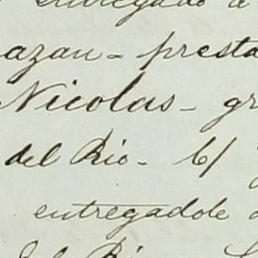 entregado a
azan - presta
Nicolas - gr
del Rio - 6/
entregadole
del Rio